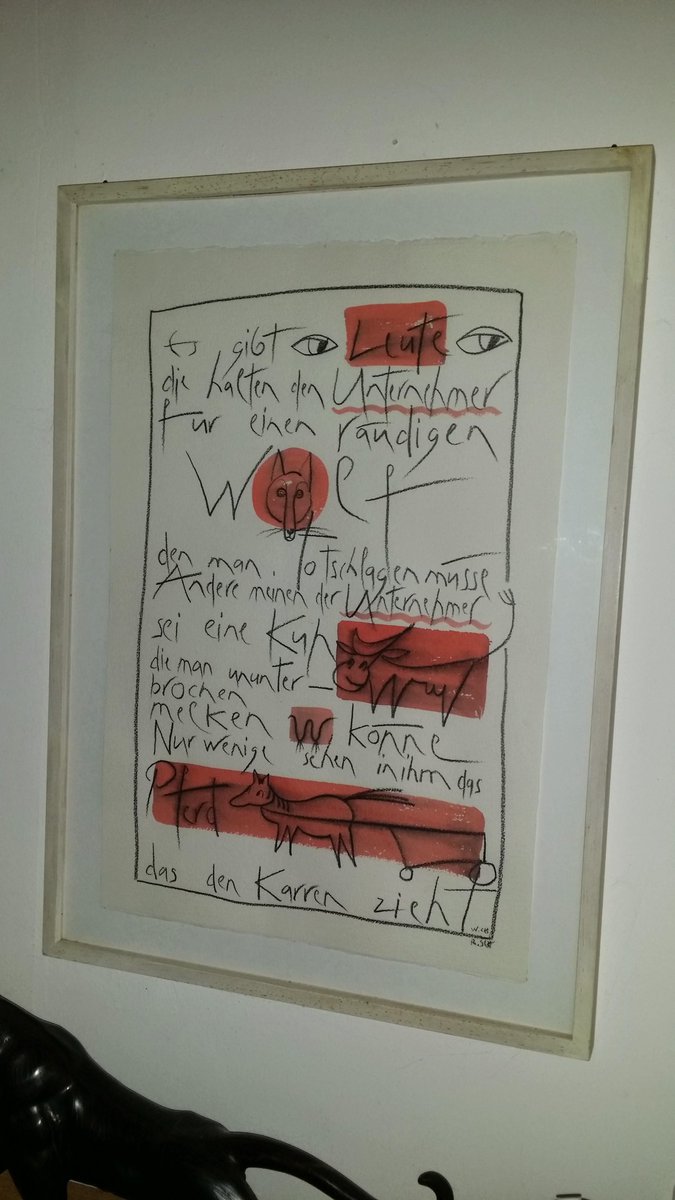 Es gibt Leute
die halten den Unternehmer
für einen räudigen
Wolf
den man totschlagen müsse
Andere meinen der Unternehmer
sei eine Kuh
die man ununter-
brochen
melken könne
Nur wenige sehen in ihm das
Pferd
das den Karren zieht